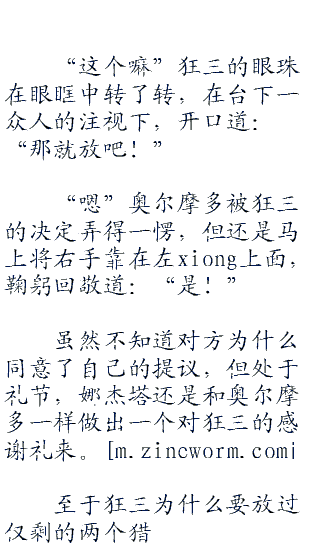 “这个嘛”狂三的眼珠
在眼眶中转了转，在台下一
众人的注视下，开口道：
“那就放吧！”
“嗯”奥尔摩多被狂三
的决定弄得一愣，但还是马
上将右手靠在左xiong上面，
鞠躬回敬道：“是！”
虽然不知道对方为什么
同意了自己的提议，但处于
礼节，娜杰塔还是和奥尔摩
多一样做出一个对狂三的感
谢礼来。[m.zincworm.com]
至于狂三为什么要放过
仅剩的两个猎